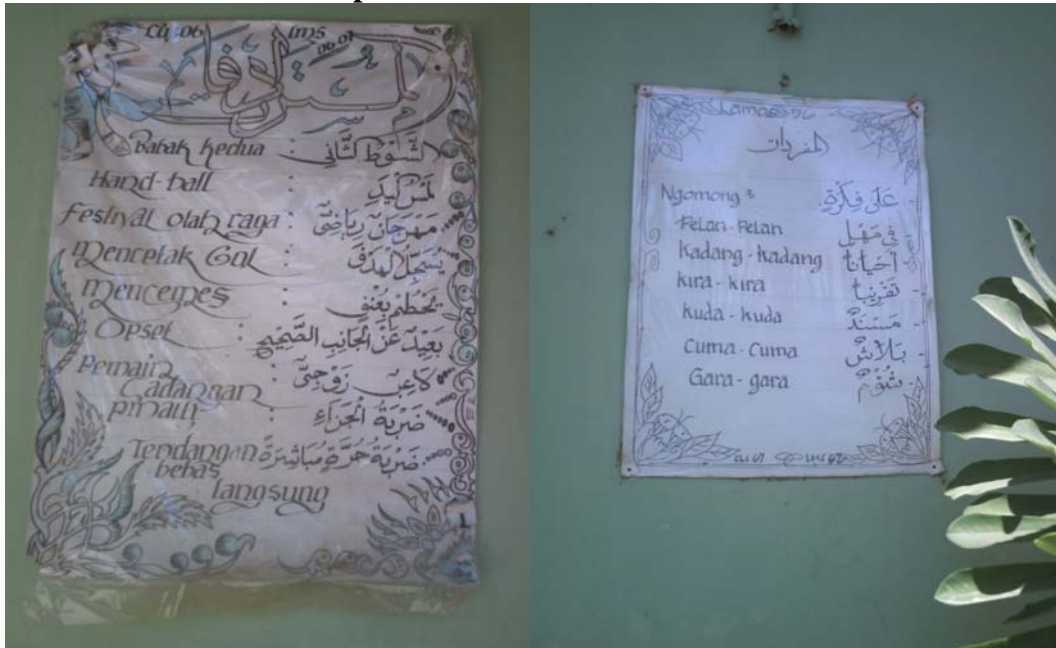 Babak kedua : الشَّوْطُ الثَّانِي
Hand-ball : لَمْسُ الْيَدِ
Festival olah raga : مَهْرَجَانٌ رِيَاضِيٌّ
Mencetak Gol : يُسَجِّلُ الْهَدَفَ
Menceples : يُحَطِّمُ بِعُنْفٍ
Opset : بَعِيْدٌ عَنْ الْجَانِبِ الصَّحِيْحِ
Pemain Cadangan :
Pinalti : ضَرْبَةُ الْجَزَاءِ
Tendangan bebas langsung : ضَرْبَةٌ حُرَّةٌ مُبَاشِرَةٌ
المفردات
Ngomong² عَلَى فِكْرَةٍ
Pelan-Pelan فِي مَهْلٍ
Kadang-kadang أَحْيَانًا
kira-kira تَقْرِيْبًا
kuda-kuda مَسْنَدٌ
Cuma-Cuma بَلَاشٌ
Gara-gara شُؤْمٌ